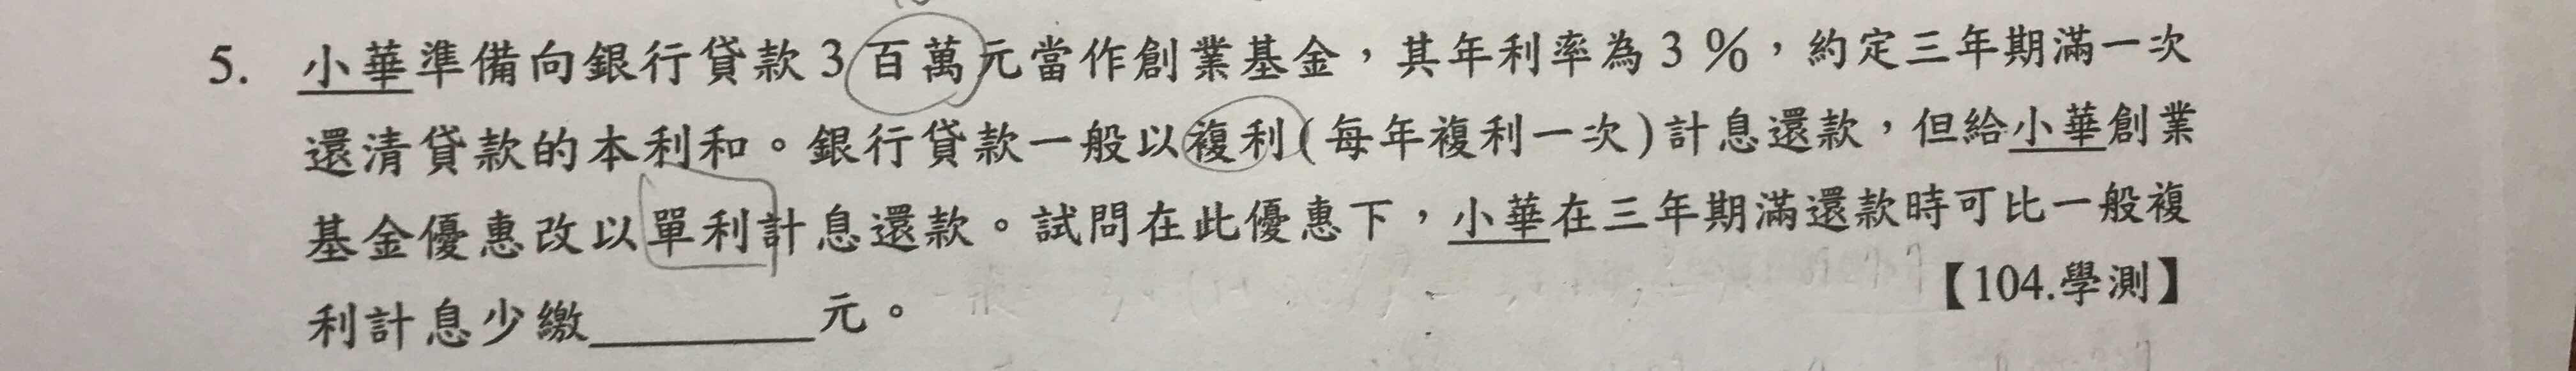 5. 小華準備向銀行貸款3百萬元當作創業基金，其年利率為3%，約定三年期滿一次
還清貸款的本利和。銀行貸款一般以複利(每年複利一次)計息還款，但給小華創業
基金優惠改以單利計息還款。試問在此優惠下，小華在三年期滿還款時可比一般複
利計息少繳__________元。 【104.學測】